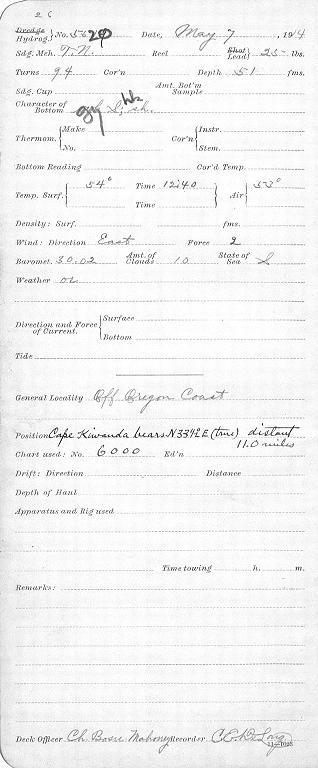 Dredge
Hydrog. No. Date, May 7, 1914
Sdg. Mch. T.N. Reel Shot Lead 25 lbs.
Turns 94 Cor'n Depth 51 fms.
Sdg. Cup Amt. Bot'm Sample
Character of Bottom
Thermom. Make No. Cor'n Instr. Stem.
Bottom Reading Cor'd Temp.
Temp. Surf. 54° Time 12:40 Time Air 53°
Density: Surf. fms.
Wind: Direction East Force 2
Baromet. 30.02 Amt. of Clouds 10 State of Sea S
Weather
Direction and Force of Current. Surface Bottom
Tide
General Locality Off Oregon Coast
Position Cape Kiwanda bears N33½E (true) distant
11.0 miles
Chart used: No. 6000 Ed'n
Drift: Direction Distance
Depth of Haul
Apparatus and Rig used
Time towing h. m.
Remarks:
Deck Officer Ch. Bosn Mahony Recorder C.E. De Long